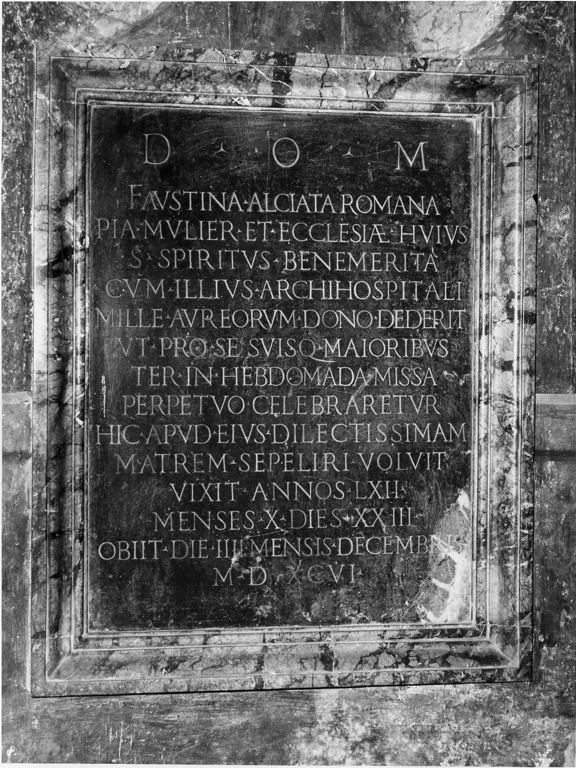 D · O · M
FAVSTINA·ALCIATA ROMANA
PIA·MVLIER·ET·ECCLESIÆ·HVIVS
S·SPIRITVS·BENEMERITA
CVM·ILLIVS·ARCHIHOSPITALI
MILLE·AVREORVM·DONO·DEDERIT
VT·PRO·SE·SVISQ·MAIORIBVS
TER·IN·HEBDOMADA·MISSA
PERPETVO·CELEBRARETVR
HIC·APVD·EIVS·DILECTISSIMAM
MATREM·SEPELIRI·VOLVIT
VIXIT·ANNOS·LXII·
MENSES·X·DIES·XXIII·
OBIIT·DIE·IIII·MENSIS·DECEMBRIS
M·D·XCVI·